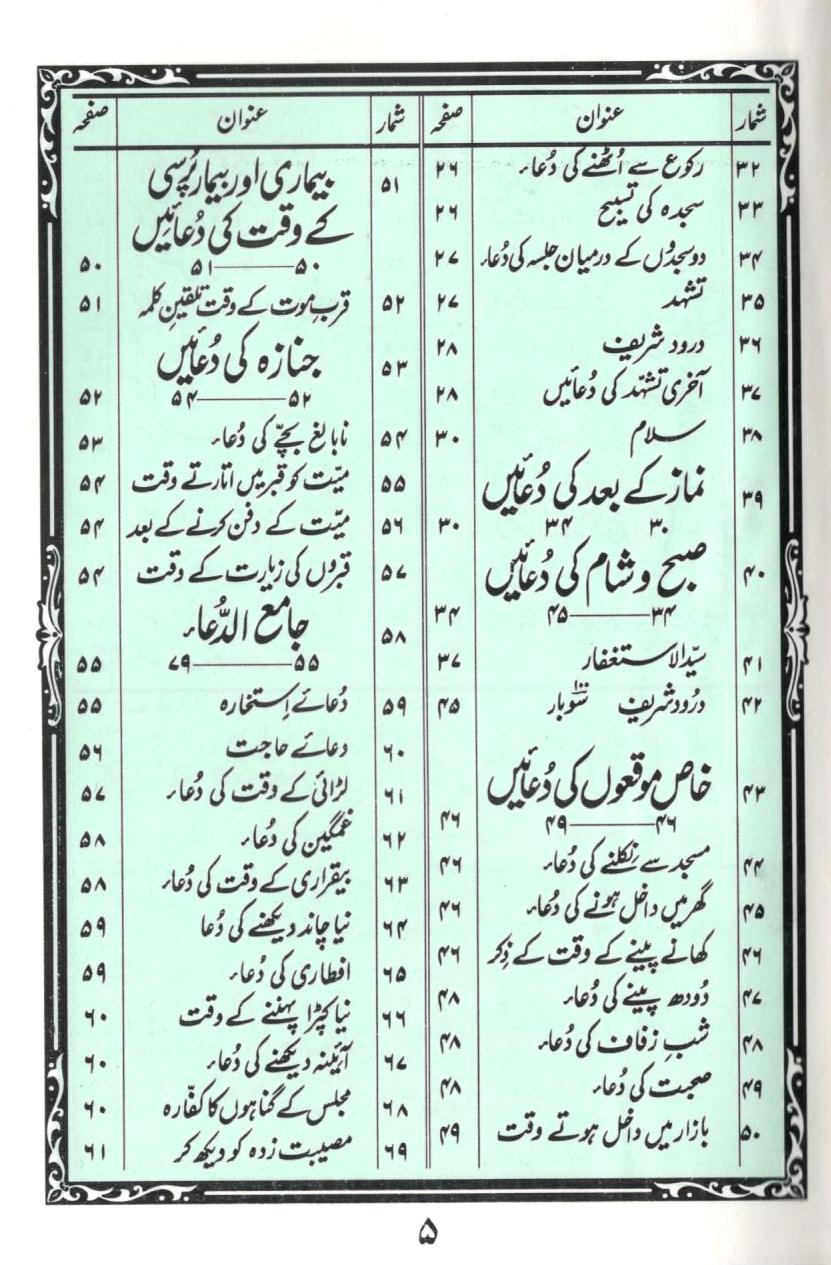 شمار عنوان صفحہ
۳۲ رکوع سے اُٹھنے کی دُعاء ۲۶
۳۳ سجدہ کی تسبیح ۲۶
۳۴ دو سجدوں کے درمیان جلسہ کی دُعاء ۲۷
۳۵ تشہد ۲۷
۳۶ درود شریف ۲۸
۳۷ آخری تشہّد کی دُعائیں ۲۸
۳۸ سلام ۳۰
۳۹ نماز کے بعد کی دُعائیں
۳۰ ۳۴ ۳۰
۴۰ صبح و شام کی دُعائیں
۳۴ــــــ۴۵ ۳۴
۴۱ سیّدالاستغفار ۳۷
۴۲ درُود شریف ۱۰۰ سَوبار ۴۵
۴۳ خاص موقعوں کی دُعائیں
۴۶ــــــ۴۹ ۴۶
۴۴ مسجد سے نِکلنے کی دُعاء ۴۶
۴۵ گھر میں داخل ہونے کی دُعاء ۴۶
۴۶ کھانے پینے کے وقت کے ذِکر ۴۶
۴۷ دُودھ پینے کی دُعاء ۴۸
۴۸ شبِ زفاف کی دُعاء ۴۸
۴۹ صحبت کی دُعاء ۴۸
۵۰ بازار میں داخل ہوتے وقت ۴۹
شمار عنوان صفحہ
۵۱ بیماری اور بیمار پُرسی
کے وقت کی دُعائیں
۵۰ــــــ۵۱ ۵۰
۵۲ قربِ موت کے وقت تلقینِ کلمہ ۵۱
۵۳ جنازہ کی دُعائیں
۵۲ــــــ۵۴ ۵۲
۵۴ نابالغ بچّے کی دُعاء ۵۳
۵۵ میّت کو قبر میں اتارتے وقت ۵۴
۵۶ میّت کے دفن کرنے کے بعد ۵۴
۵۷ قبروں کی زیارت کے وقت ۵۴
۵۸ جامع الدُّعاء
۵۵ــــــ۷۹ ۵۵
۵۹ دُعائے اِستخارہ ۵۵
۶۰ دعائے حاجت ۵۶
۶۱ لڑائی کے وقت کی دُعاء ۵۷
۶۲ غمگین کی دُعاء ۵۸
۶۳ بیقراری کے وقت کی دُعاء ۵۸
۶۴ نیا چاند دیکھنے کی دُعا ۵۹
۶۵ افطاری کی دُعاء ۵۹
۶۶ نیا کپڑا پہننے کے وقت ۶۰
۶۷ آئینہ دیکھنے کی دُعاء ۶۰
۶۸ مجلس کے گناہوں کا کفّارہ ۶۰
۶۹ مصیبت زدہ کو دیکھ کر ۶۱
۵